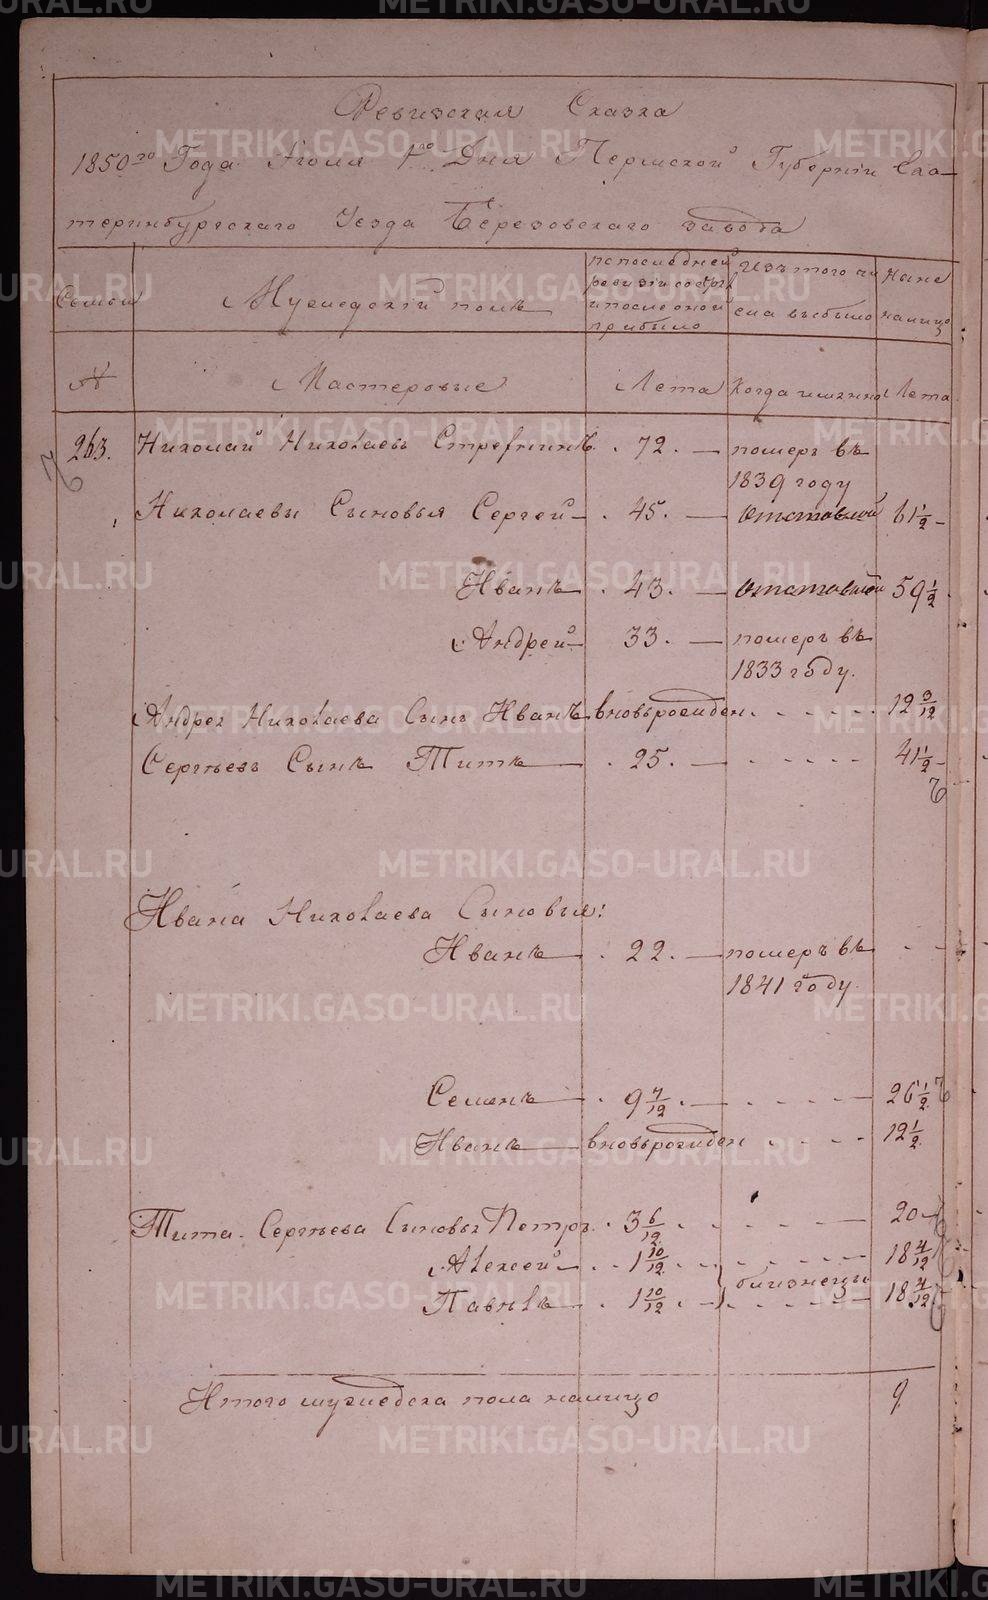 Ревизская Сказка
1850го Года Июля 1го Дня Пермской Губернiи Ека-
теринбургскаго Уезда Березовскаго завода
Семьи
Мужедский полъ
по последней
ревизiи состоял
и после оной
прибыло
Изъ того чи
сла выбыло
Ныне
налицо
№
Мастеровые
Лета
Когда именно
Лета
263. Николай Николаевъ 72. померъ въ
1839 году
Николаевы Сыновья Сергей 45. отставной 61 1/2
Иванъ 43. отставной 59 1/2
Андрей 33. померъ въ
1833 году.
Андрея Николаева Сынъ Иванъ вновьрожден 12 3/12
Сергеевъ Сынъ Титъ 25. 41 1/2
Ивана Николаева Сыновья:
Иванъ 22. померъ въ
1841 году.
Семенъ 9 7/12. 26 1/2
Иванъ вновьрожден 12 1/2
Тита Сергеева Сыновья Петръ 3 6/12 20
Алексей 1 10/12. 18 4/12
близнецы
Павелъ 1 10/12. 18 4/12
Итого мужедска пола налицо 9
METRIKI.GASO-URAL.RU